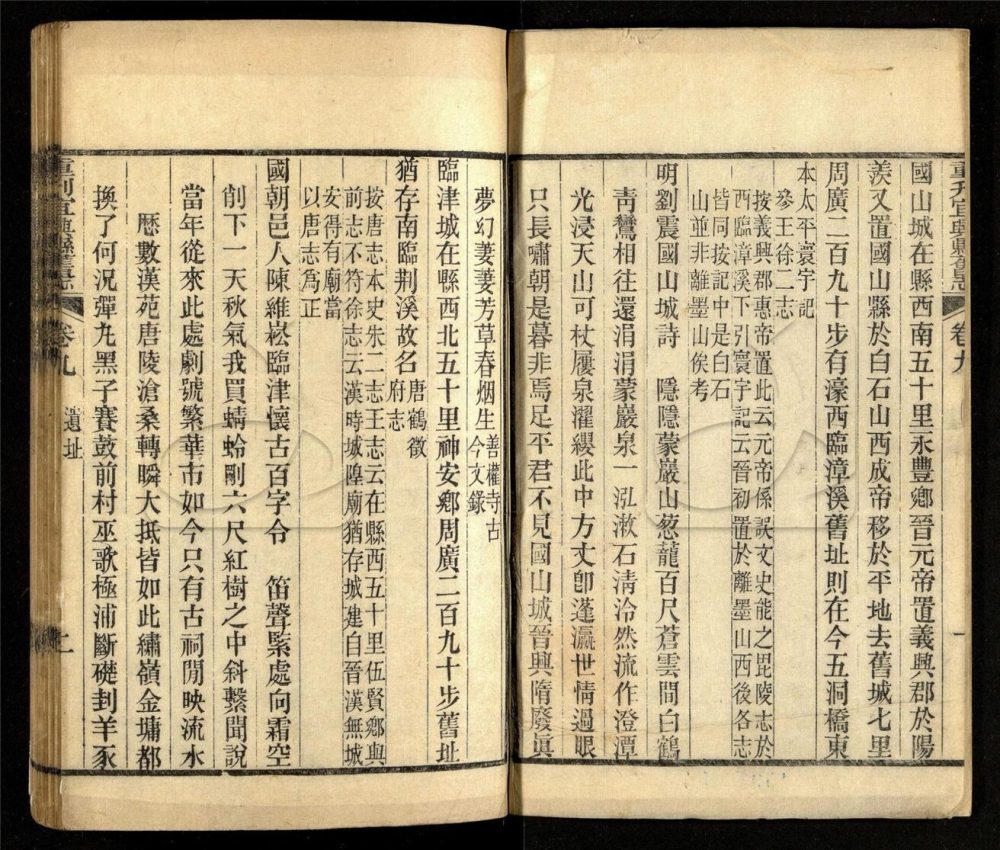 國山城在縣西南五十里永豐鄉晉元帝置義興郡於陽
羨又置國山縣於白石山西成帝移於平地去舊城七里
周廣二百九十步有濠西臨漳溪舊址則在今五洞橋東
本太平寰宇記
參王徐二志
按義興郡惠帝置此云元帝係誤文史能之毘陵志於
西臨漳溪下引寰宇記云晉初置於離墨山西後各志
皆同按記中是白石
山並非離墨山俟考
明劉震國山城詩 隱隱蒙巖山葱蘢百尺蒼雲間白鶴
青鸞相往還涓涓蒙巖泉一泓漱石清泠然流作澄潭
光浸天山可杖屨泉濯纓此中方丈卽蓬瀛世情過眼
只長嘯朝是暮非焉足平君不見國山城晉興隋廢眞
重刋宜興縣舊志 卷九
夢幻萋萋芳草春烟生
善權寺古
今文錄
臨津城在縣西北五十里神安鄉周廣二百九十步舊址
猶存南臨荆溪故名
唐鶴徵
府志
按唐志本史朱二志王志云在縣西五十里伍賢鄉與
前志不符徐志云漢時城隍廟猶存城建自晉漢無城
安得有廟當
以唐志爲正
國朝邑人陳維崧臨津懷古百字令 笛聲緊處向霜空
削下一天秋氣我買蜻蛉剛六尺紅樹之中斜繫聞說
當年從來此處劇號繁華市如今只有古祠閒映流水
歷數漢苑唐陵滄桑轉瞬大抵皆如此繡嶺金墉都
換了何況彈丸黑子賽鼓前村巫歌極浦斷礎刲羊豕
重刋宜興縣舊志 卷九 遺址